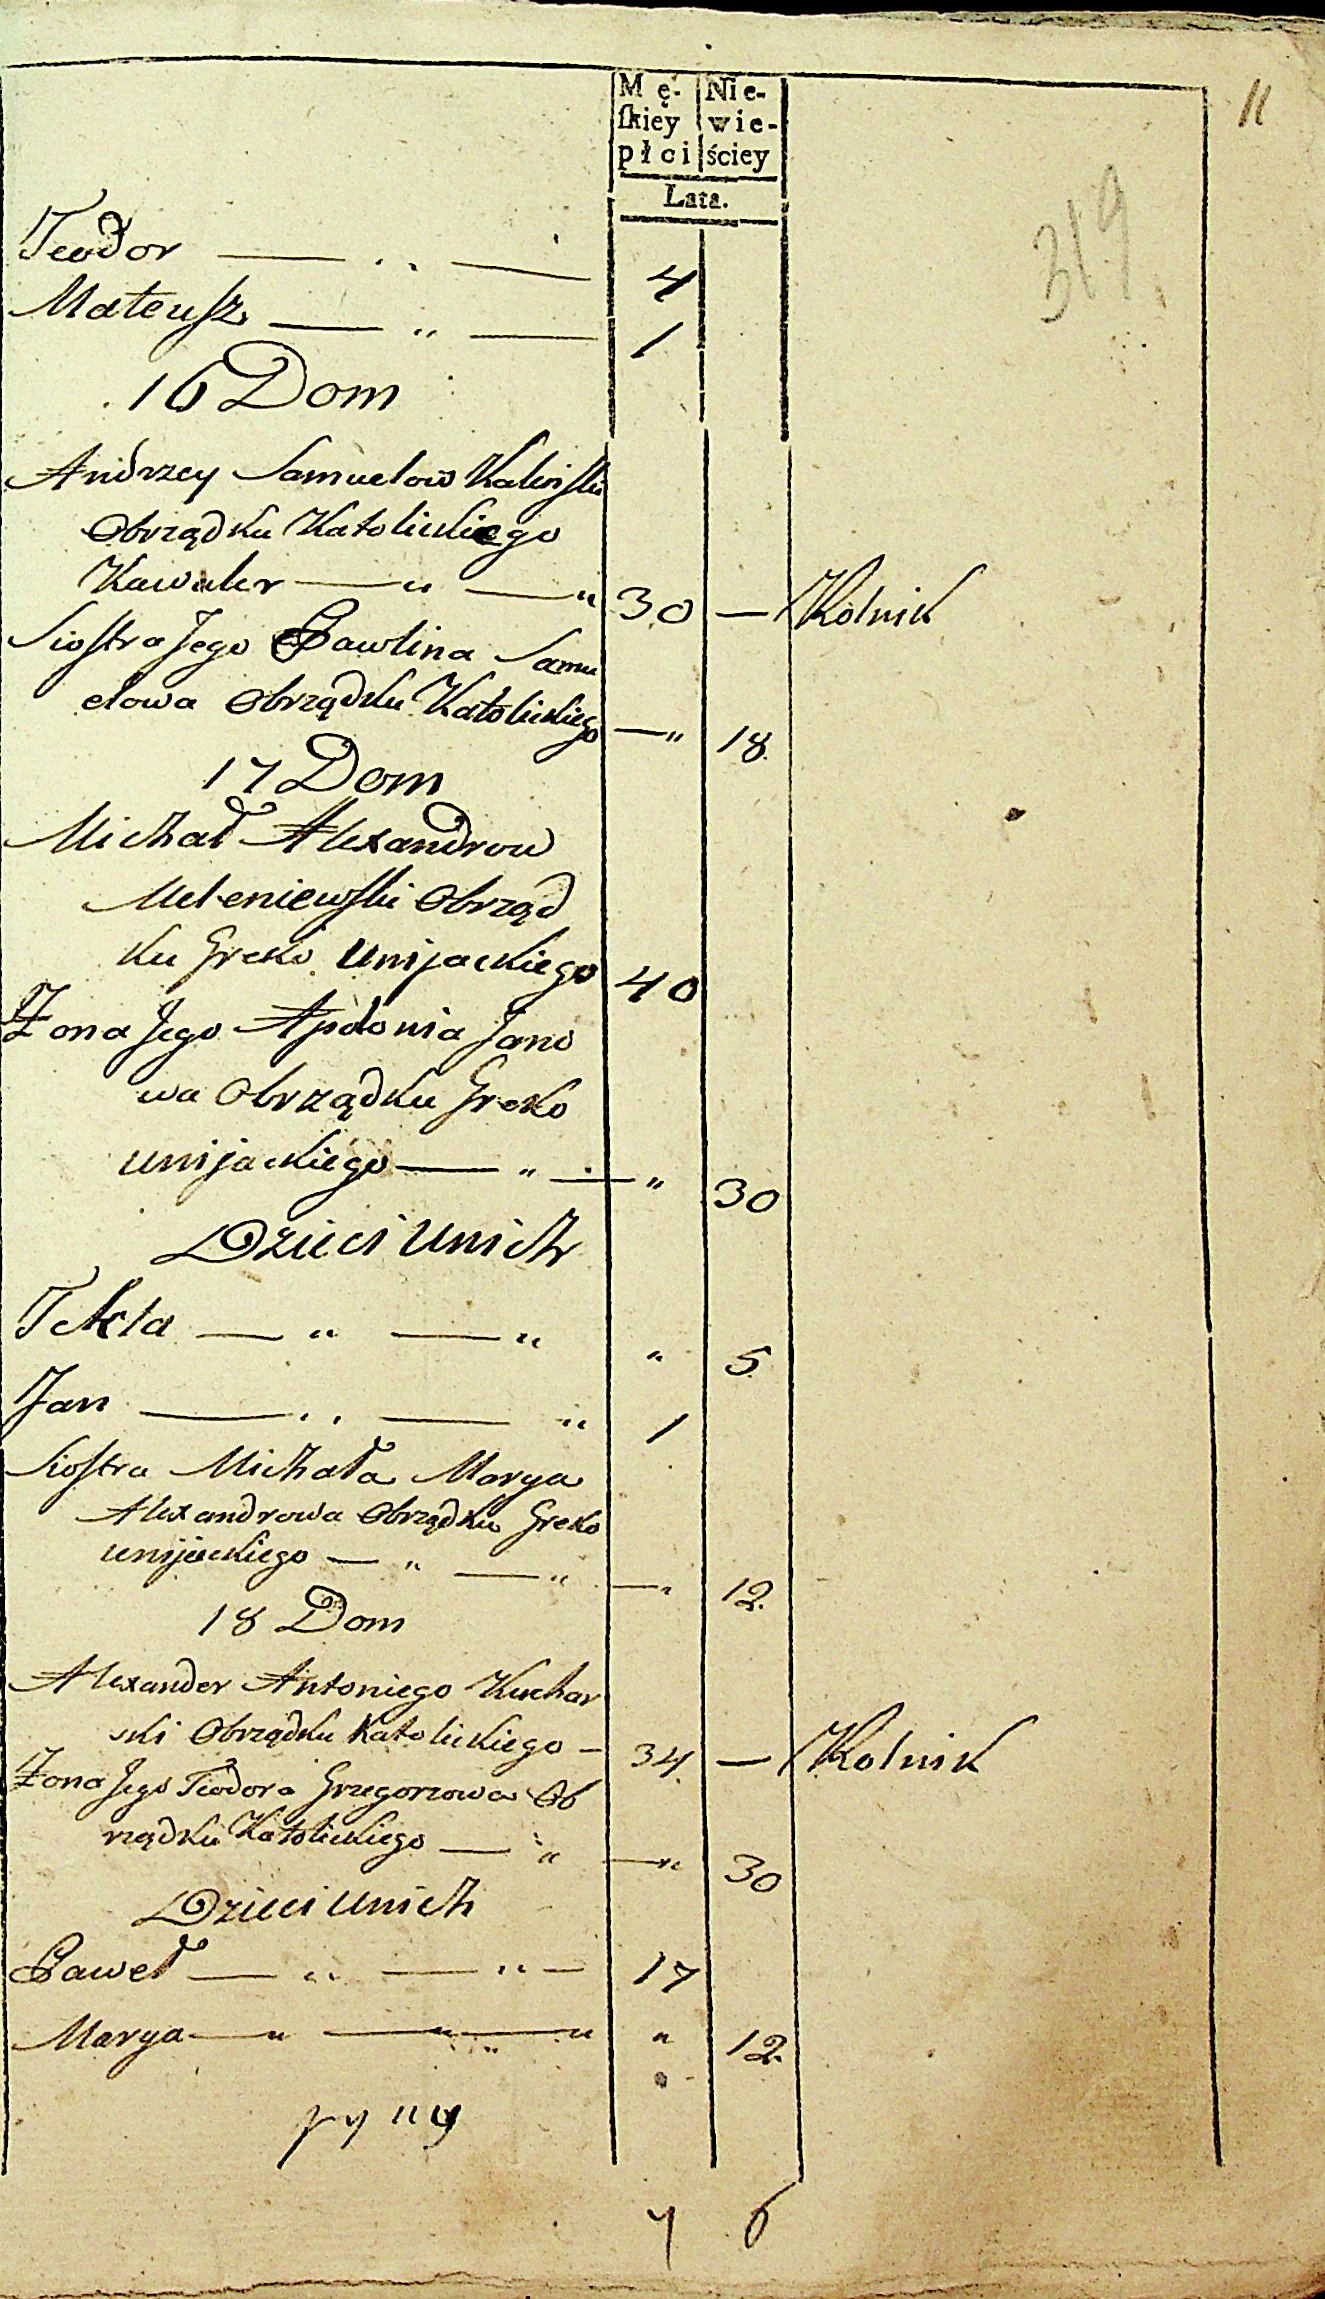 11
319
Mę- Nie-
ſkiey wie-
płci ściey
Lata.
Teodor — „ — 4
Mateusz — „ — 1
16 Dom
Andrzey Samuelow
Obrządku Katolickiego
Kawaler — „ — „ 30 — Rolnik
Siostra Jego Pawlina Samu
elowa Obrządku Katolickiego — „ 18
17 Dom
Michał Alexandrow
Meleniewski Obrząd
ku Greko Unijackiego 40
Żona Jego Apolonia Jano
wa Obrządku Greko
unijackiego — „ — „ 30
Dzieci u nich
Tekla — „ — „ „ 5
Jan — „ — „ 1
Siostra Michała Marya
Alexandrowa Obrządku Greko
unijackiego — „ — „ — „ 12
18 Dom
Alexander Antoniego Kuchar
ski Obrządku Katolickiego — 34 — Rolnik
Żona Jego Teodora Grzegorzowa Ob
rządku Katolickiego — „ — „ 30
Dzieci u nich
Paweł — „ — „ — 17
Marya — „ — „ — „ „ 12
7 6